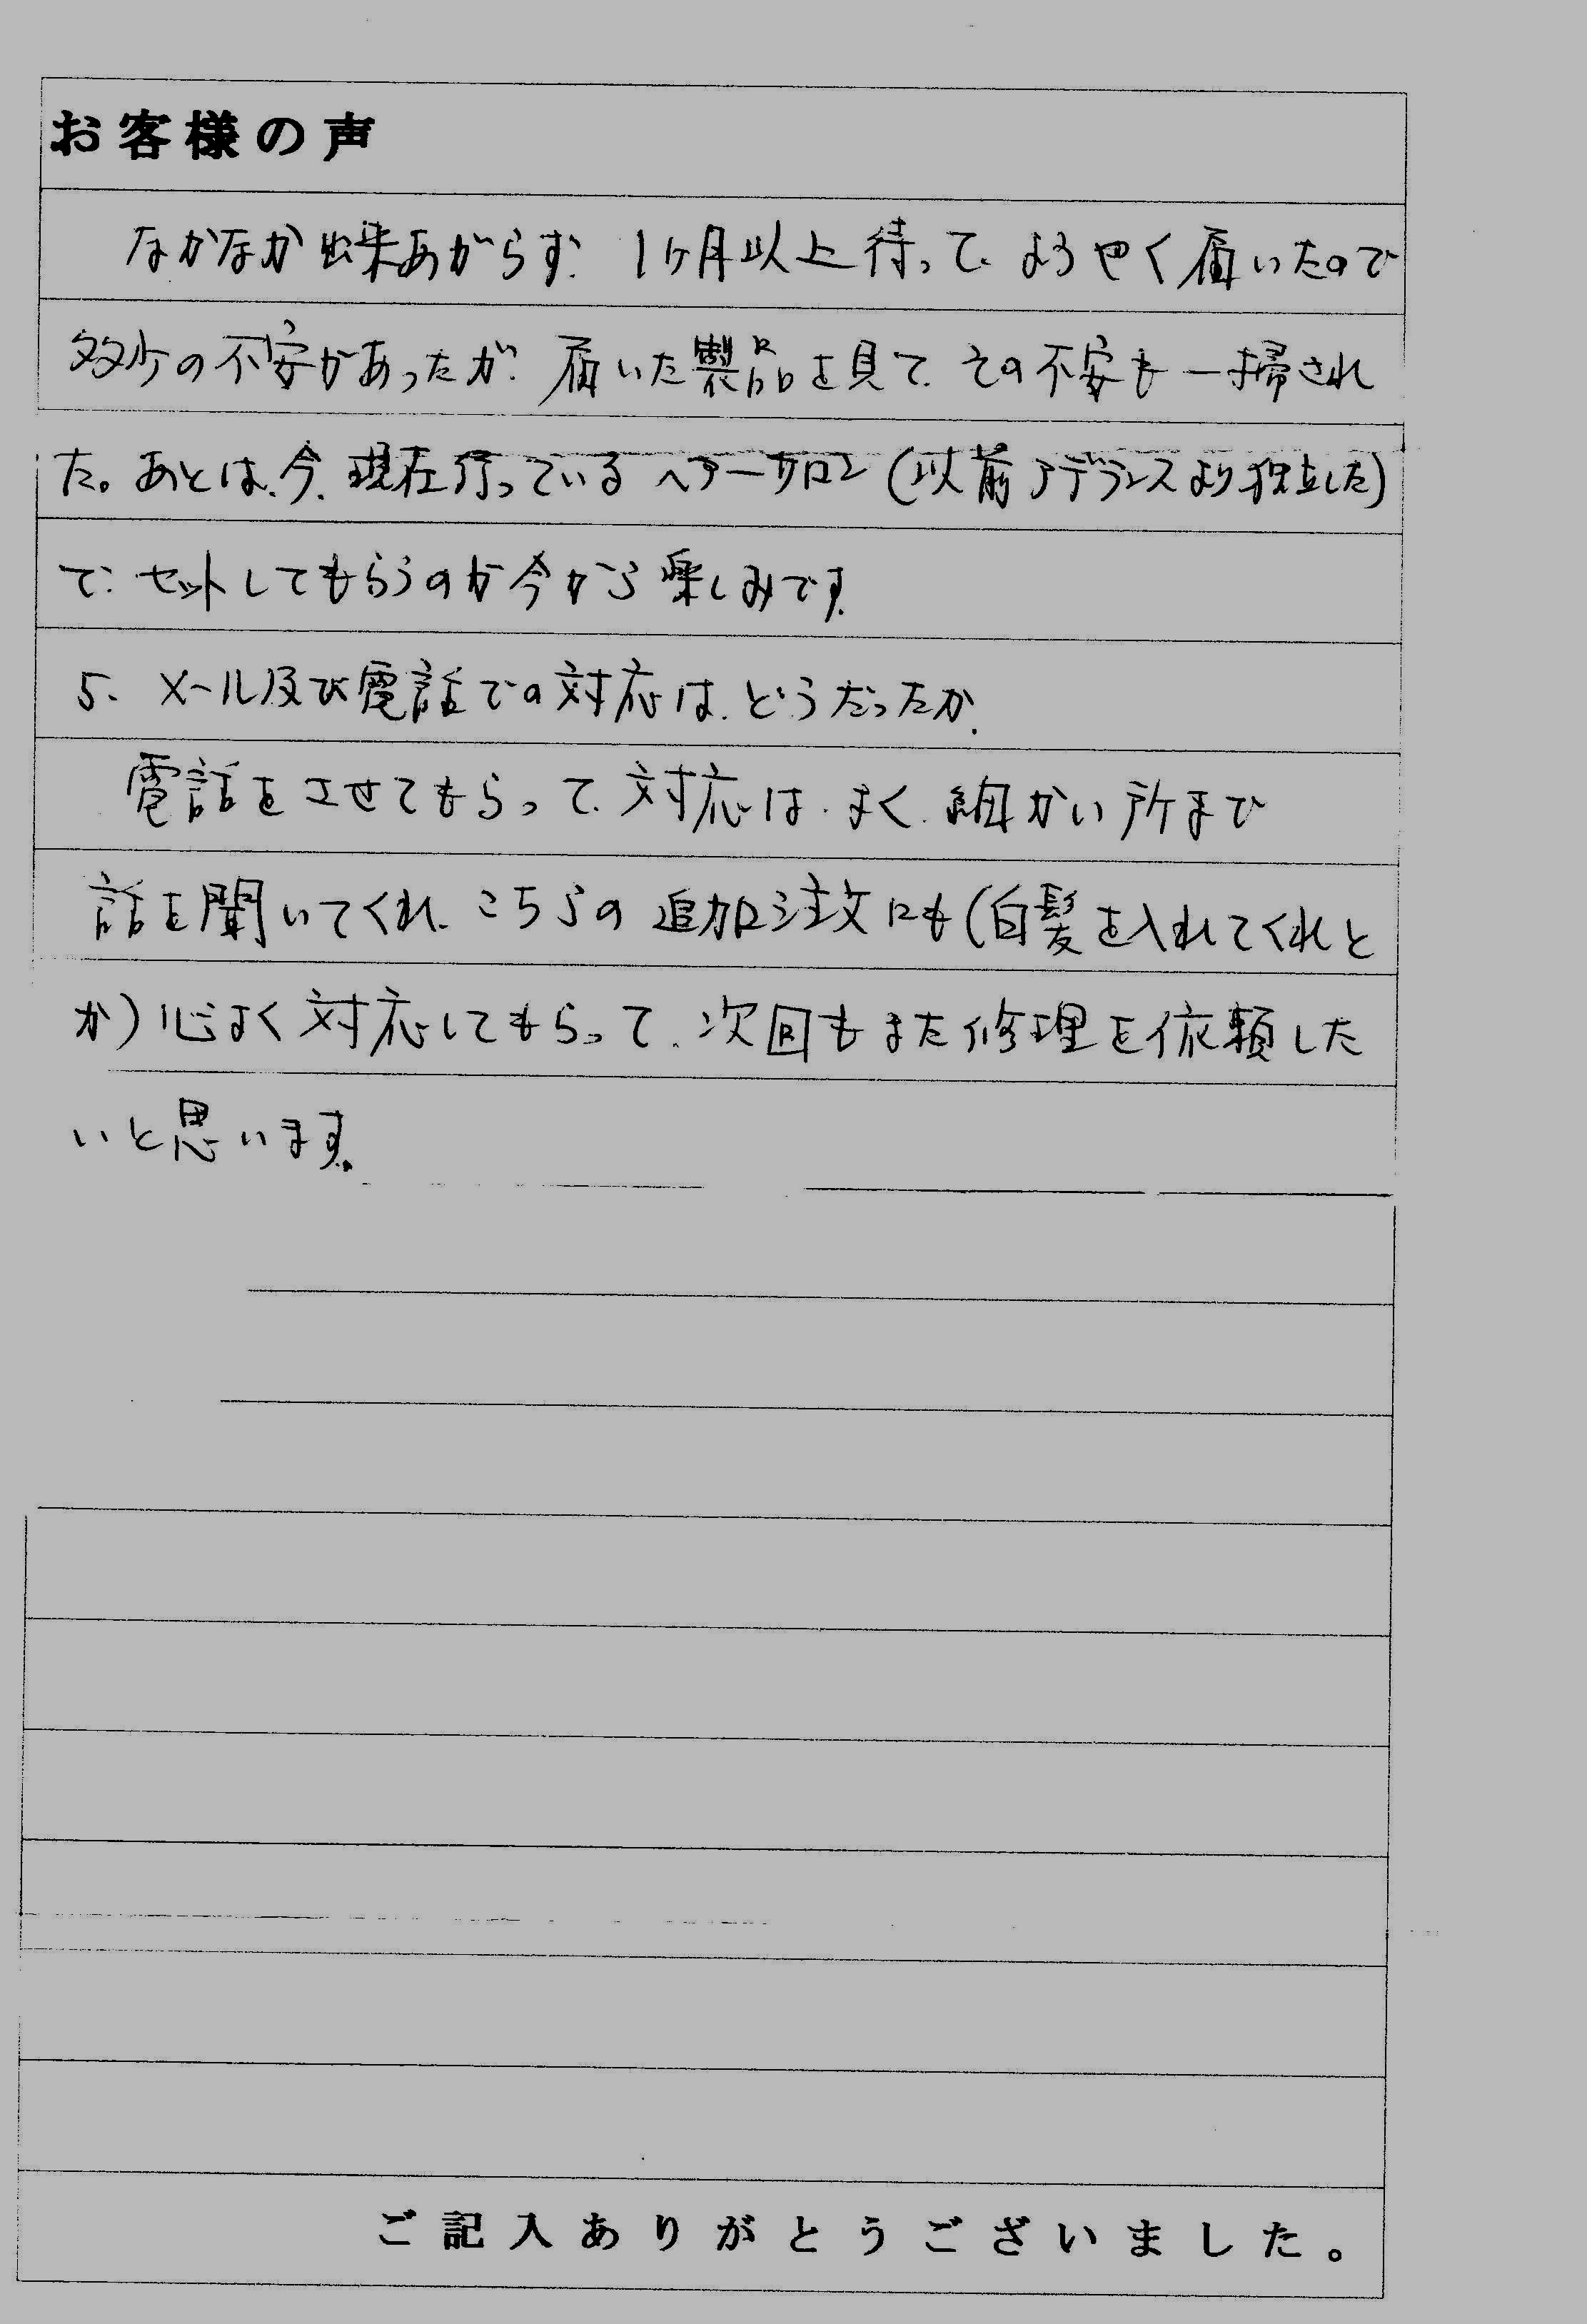 お客様の声
なかなか出来あがらず、1ヶ月以上待って、ようやく届いたので
多少の不安があったが、届いた製品を見て、その不安も一掃され
た。あとは、今、現在行っているヘアーサロン(以前アデランスより独立した)
で、セットしてもらうのが今から楽しみです。
5、メール及び電話での対応は、どうだったか。
電話をさせてもらって、対応は、よく、細かい所まで
話を聞いてくれ、こちらの追加注文にも(白髪を入れてくれと
か)心よく対応してもらって、次回もまた修理を依頼した
いと思います。
ご記入ありがとうございました。